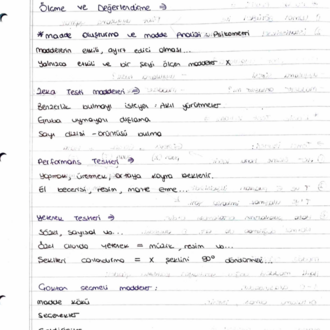 Ölçme ve Değerlendirme →
* madde Oluşturma ve madde Analizi : Psikometri
Maddelerin etkili, ayırt edici olması...
Yalnızca etkili ve bir şeyi ölçen maddeler X
Zeka Testi maddeleri →
Benzerlik bulmayı isteyen : Akıl yürütmeler
Gruba uymayanı dışlama
Sayı dizisi - örüntüsü bulma
Performans Testleri →
Yapması, üretmesi, ortaya koyma beklenir.
El becerisi, resim, mane etme...
Yetenek Testleri →
Sözel, sayısal vs...
Özel alanda yetenek = müzik, resim vs...
Şekilleri canlandırma = X şeklini 90° döndürmesi...
Çoktan seçmeli maddeler :
madde kökü
seçenekler